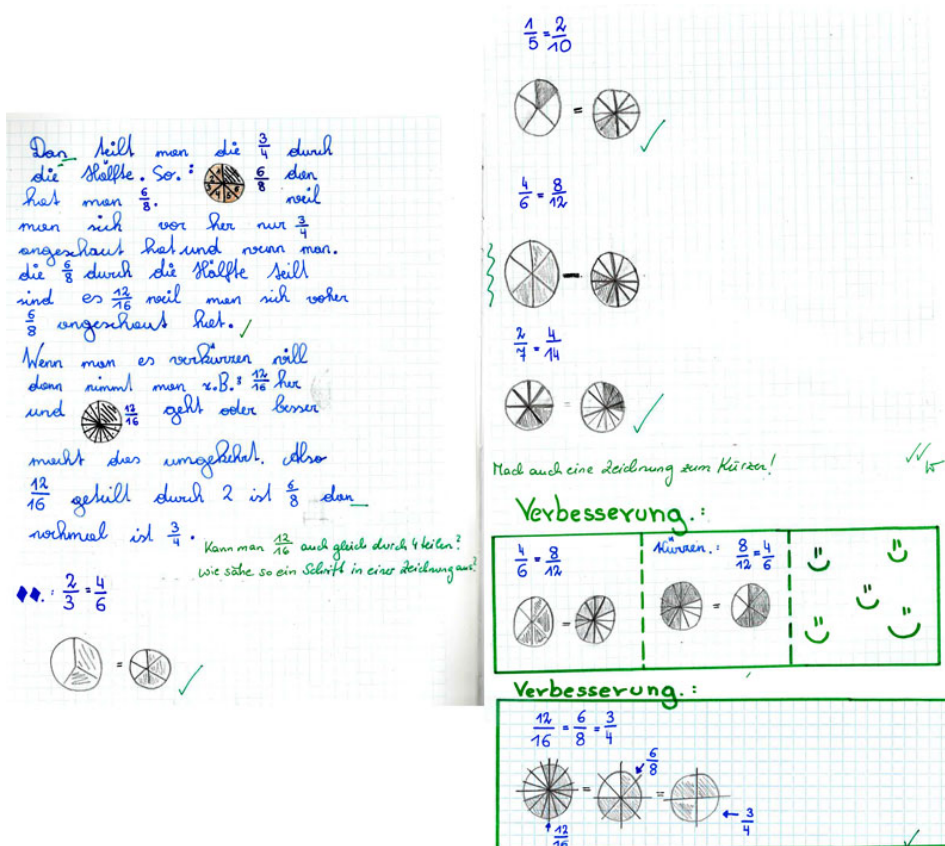 Dan teilt man die 3/4 durch
die Hälfte. So.: 6/8 dan
hat man 6/8. weil
man sich vor her nur 3/4
angeschaut hat und wenn man.
die 6/8 durch die Hälfte teilt
sind es 12/16 weil man sich voher
6/8 angeschaut hat.
Wenn man es verkürzen will
dann nimmt man z.B.: 12/16 her
und 12/16 geht oder besser
macht das umgekehrt. Also
12/16 geteilt durch 2 ist 6/8 dan
nochmal ist 3/4.
Kann man 12/16 auch gleich durch 4 teilen?
Wie sähe so ein Schritt in einer Zeichnung aus?
2/3 = 4/6
1/5 = 2/10
4/6 = 8/12
2/7 = 4/14
Mach auch eine Zeichnung zum Kürzen!
Verbesserung.:
4/6 = 8/12
Kürzen.: 8/12 = 4/6
Verbesserung.:
12/16 = 6/8 = 3/4
6/8
3/4
12/16